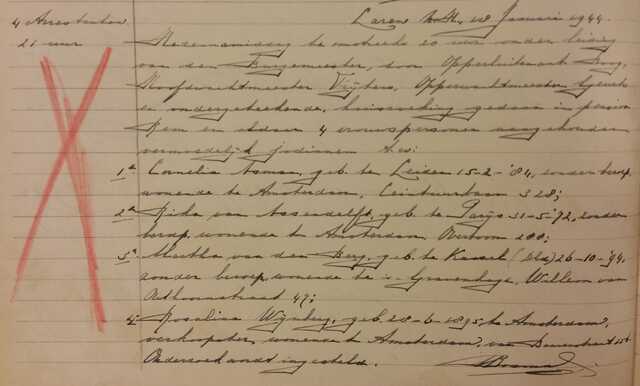 4 Arrestanten
21 uur
Laren N.H. 18 Januari 1944.
Hedenmiddag te omstreeks 20 uur onder leiding
van den Burgemeester, door Opperluitenant
Hoofdwachtmeester Opperwachtmeester
en ondergeteekende, huiszoeking gedaan in pension
en aldaar 4 vrouwspersonen aangehouden
vermoedelijk jodinnen t.w:
1e Cornelia Asman, geb. te Leiden 15-2-'84, zonder beroep
wonende te Amsterdam, Ceintuurbaan 328;
2e van Assendelft, geb. te Parijs 31-5-'92, zonder
beroep, wonende te Amsterdam Overtoom 200;
3e Martha van den Berg, geb. te Kassel 26-10-'94,
zonder beroep, wonende te 's-Gravenhage, Willem van
47;
4e Rosalina Wijnberg, geb. 28-6-1895 te Amsterdam,
verkoopster, wonende te Amsterdam, van
Onderzoek wordt ingesteld. Bosma